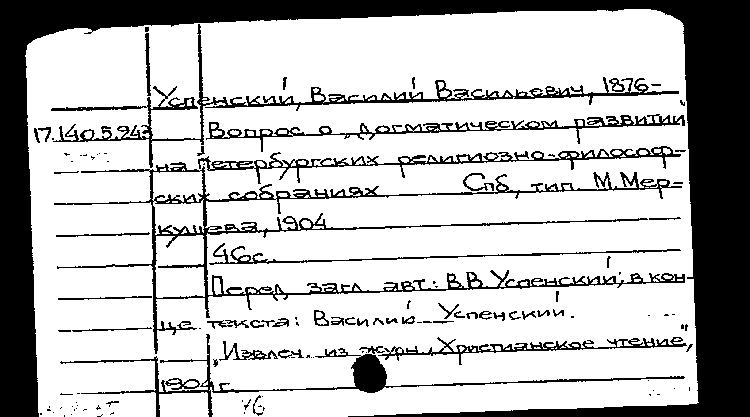 Успенский, Василий Васильевич, 1876-
17.140.5.943 Вопрос о „догматическом развитии"
на Петербургских религиозно-философ-
ских собраниях Спб, тип. М. Мер-
кушева, 1904
46с.
Перед загл. авт.: В.В. Успенский; в кон-
це текста: Василий Успенский.
„Извлеч. из журн. „Христианское чтение",
1904 г.
46